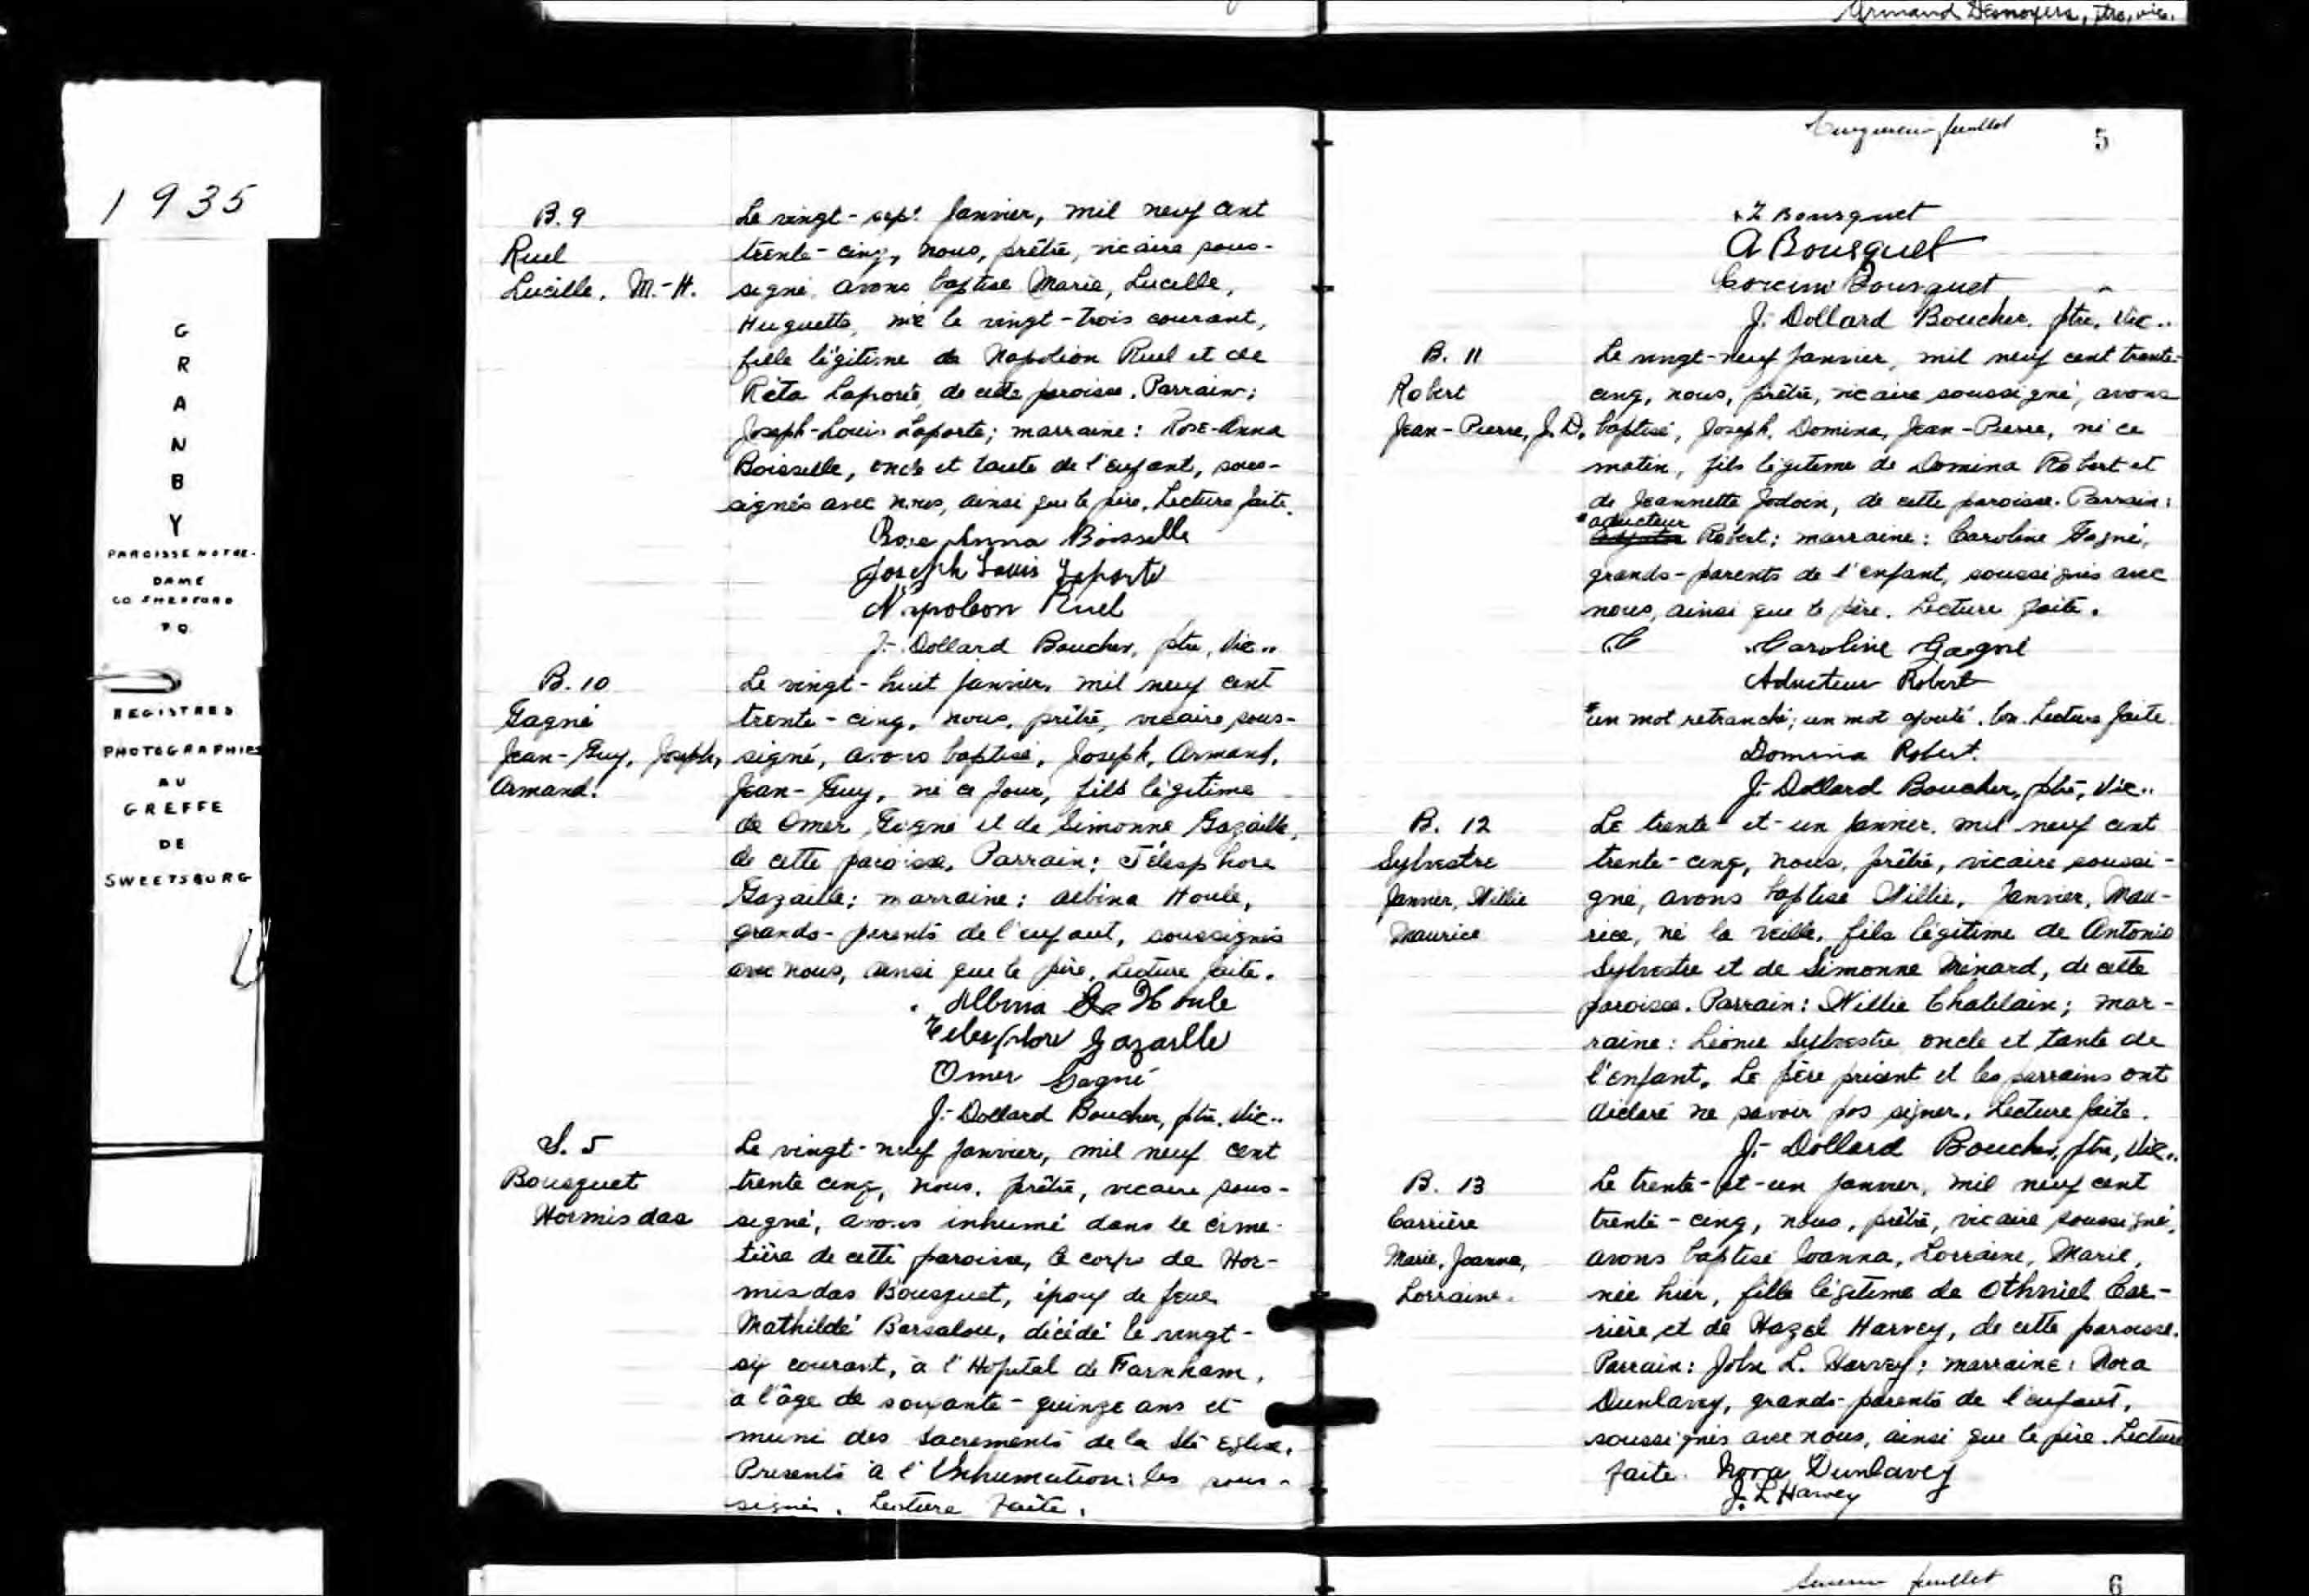 Armand Desnoyers, ptre, vic.
1935
GRANBY
PAROISSE NOTRE-
DAME
CO SHEFFORD
P.Q.
REGISTRES
PHOTOGRAPHIES
AU
GREFFE
DE
SWEETSBURG
B. 9
Ruel
Lucille, M.-H.
Le vingt-sept Janvier, mil neuf cent
trente-cinq, nous, prêtre, vicaire sous-
signé, avons baptisé Marie, Lucille,
Huguette, née le vingt-trois courant,
fille légitime de Napoléon Ruel et de
Rita Laporte, de cette paroisse. Parrain:
Joseph-Louis Laporte; marraine: Rose-Anna
Boisselle, oncle et tante de l'enfant, sous-
signés avec nous, ainsi que le père. Lecture faite.
Rose Anna Boisselle
Joseph Louis Laporte
Napoleon Ruel
J.-Dollard Boucher, ptre, Vic..
B. 10
Gagné
Jean-Guy, Joseph,
Armand.
Le vingt-huit Janvier, mil neuf cent
trente-cinq, nous, prêtre, vicaire sous-
signé, avons baptisé, Joseph, Armand,
Jean-Guy, né ce jour, fils légitime
de Omer Gagné et de Simonne Gazaille,
de cette paroisse. Parrain: Télesphore
Gazaille; marraine: Albina Houle,
grands-parents de l'enfant, soussignés
avec nous, ainsi que le père. Lecture faite.
Albina Houle
Telesphore Gazaille
Omer Gagné
J.-Dollard Boucher, ptre, Vic..
S. 5
Bousquet
Hormisdas
Le vingt-neuf Janvier, mil neuf cent
trente cinq, nous, prêtre, vicaire sous-
signé, avons inhumé dans le cime-
tière de cette paroisse, le corps de Hor-
misdas Bousquet, époux de feue
Mathilde Barsalou, décédé le vingt-
six courant, à l'Hôpital de Farnham,
à l'âge de soixante-quinze ans et
muni des Sacrements de la Ste Eglise.
Présents à l'Inhumation: les sous-
signés. Lecture faite.
Cinquième feuillet 5
Z Bousquet
A Bousquet
Bousquet
J.-Dollard Boucher, ptre, Vic..
B. 11
Robert
Jean-Pierre, J.D.
Le vingt-neuf Janvier, mil neuf cent trente-
cinq, nous, prêtre, vicaire soussigné, avons
baptisé, Joseph, Domina, Jean-Pierre, né ce
matin, fils légitime de Domina Robert et
de Jeannette Jodoin, de cette paroisse. Parrain:
aducteur
Robert; marraine: Caroline Gagné,
grands-parents de l'enfant, soussignés avec
nous, ainsi que le père. Lecture faite.
C Caroline Gagné
Aducteur Robert
un mot retranché; un mot ajouté. bon. Lecture faite.
Domina Robert.
J.-Dollard Boucher, ptre, Vic..
B. 12
Sylvestre
Janvier, Willie
Maurice
Le trente-et-un Janvier, mil neuf cent
trente-cinq, nous, prêtre, vicaire soussi-
gné, avons baptisé Willie, Janvier, Mau-
rice, né la veille, fils légitime de Antonio
Sylvestre et de Simonne Ménard, de cette
paroisse. Parrain: Willie Chatelain; mar-
raine: Léonie Sylvestre oncle et tante de
l'enfant. Le père présent et les parrains ont
déclaré ne savoir pas signer. Lecture faite.
J.-Dollard Boucher, ptre, Vic..
B. 13
Carrière
Marie, Joanna,
Lorraine.
Le trente-et-un Janvier, mil neuf cent
trente-cinq, nous, prêtre, vicaire soussigné,
avons baptisé Joanna, Lorraine, Marie,
née hier, fille légitime de Othniel Car-
rière et de Hazel Harvey, de cette paroisse.
Parrain: John L. Harvey; marraine: Nora
Dunlavey, grands-parents de l'enfant,
soussignés avec nous, ainsi que le père. Lecture
faite. Nora Dunlavey
J. L Harvey
feuillet 6